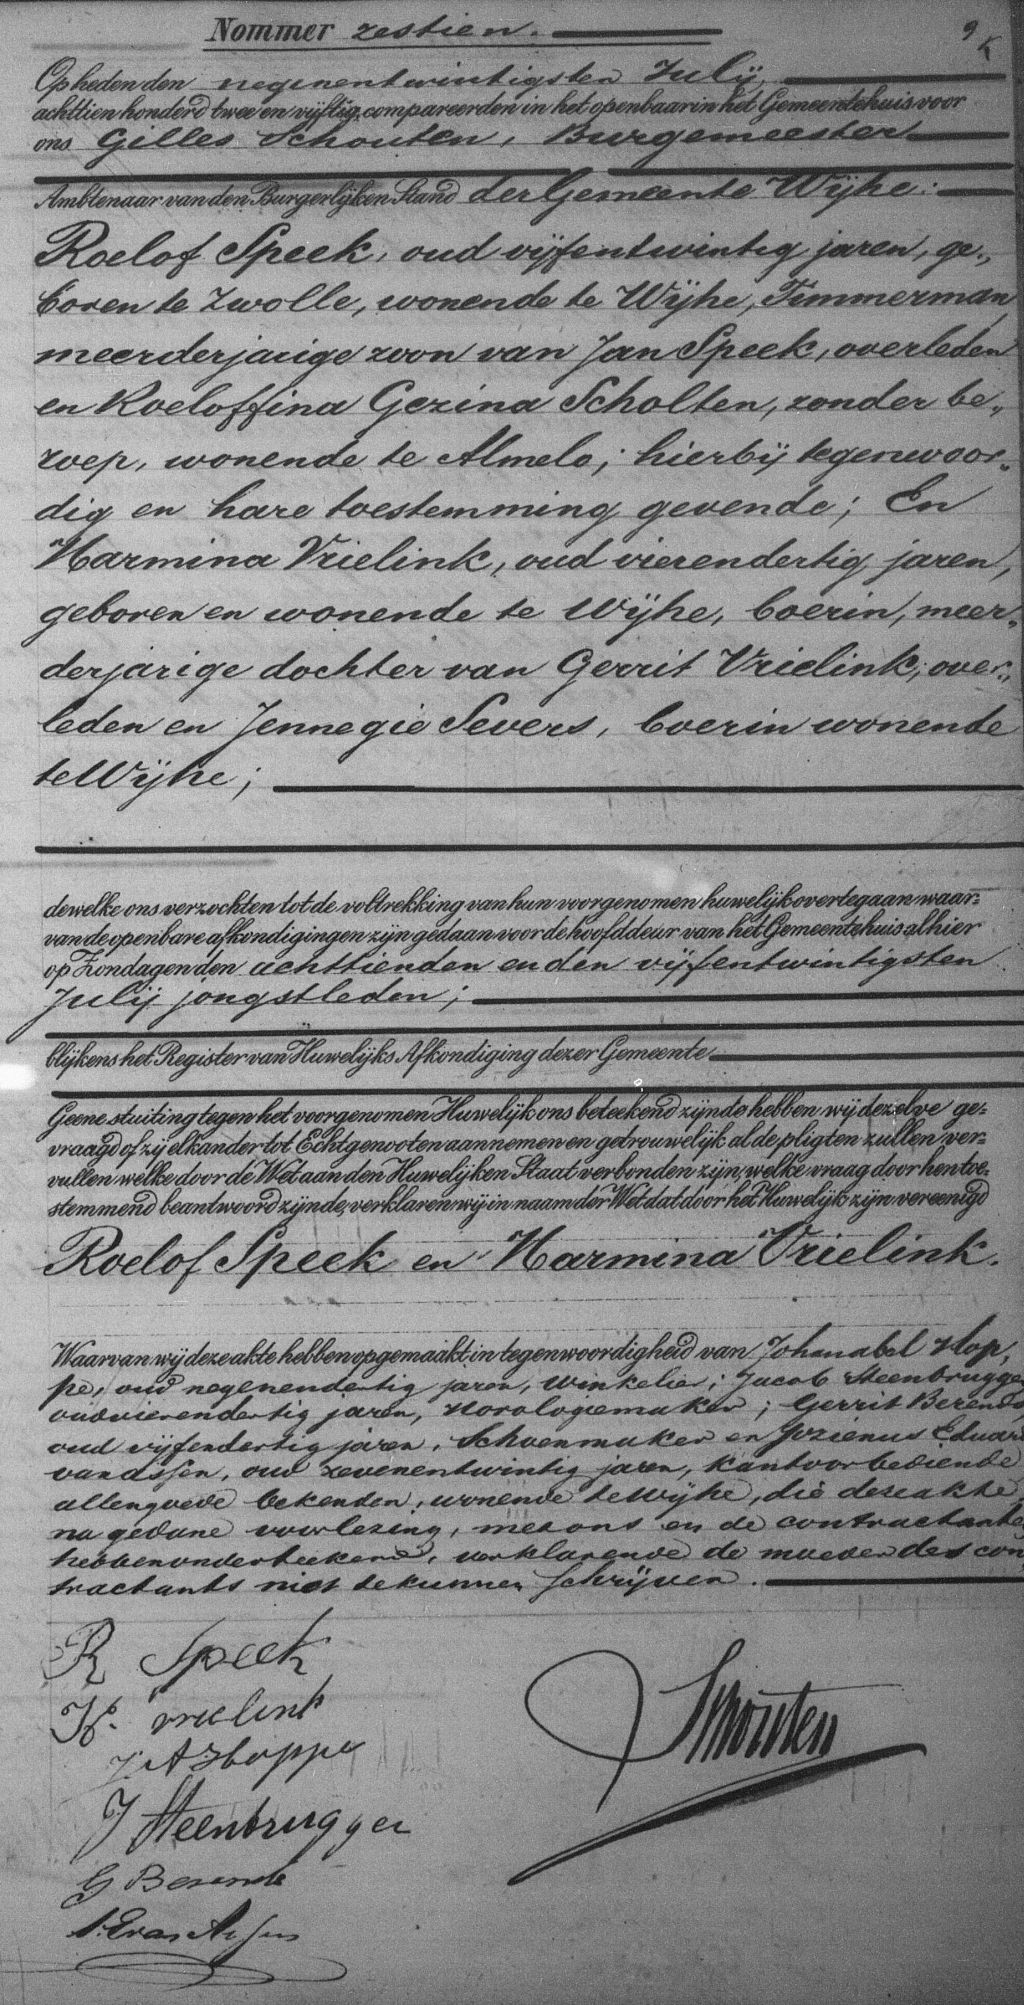 Nommer zestien. 9
Op heden den negenentwintigsten Julij
achttien honderd twee en vijftig, compareerden in het openbaar in het Gemeentehuis voor
ons Gilles Schouten, Burgemeester
Ambtenaar van den Burgerlijken Stand der Gemeente Wijhe:
Roelof Speek, oud vijfentwintig jaren, ge„
boren te Zwolle, wonende te Wijhe, Timmerman,
meerderjarige zoon van Jan Speek, overleden
en Roeloffina Gezina Scholten, zonder be„
roep, wonende te Almelo; hierbij tegenwoor„
dig en hare toestemming gevende; En
Harmina Vrielink, oud vierendertig jaren,
geboren en wonende te Wijhe, boerin, meer„
derjarige dochter van Gerrit Vrielink, over„
leden en Jennegie Severs, boerin wonende
te Wijhe;
dewelke ons verzochten tot de voltrekking van hun voorgenomen huwelijk overtegaan waar-
van de openbare afkondigingen zijn gedaan voor de hoofddeur van het Gemeentehuis alhier
op Zondagen den achttienden en den vijfentwintigsten
Julij jongstleden;
blijkens het Register van Huwelijks Afkondiging dezer Gemeente
Geene stuiting tegen het voorgenomen Huwelijk ons beteekend zijnde hebben wij dezelve ge-
vraagd of zij elkander tot Echtgenooten aannemen en getrouwelijk al de pligten zullen ver-
vullen welke door de Wet aan den Huwelijken Staat verbonden zijn, welke vraag door hen toe-
stemmend beantwoord zijnde, verklaren wij in naam der Wet dat door het Huwelijk zijn vereenigd
Roelof Speek en Harmina Vrielink.
Waarvan wij deze akte hebben opgemaakt in tegenwoordigheid van Johan Abel Hop„
pe, oud negenendertig jaren, winkelier; Jacob Steenbrugger
oud vierendertig jaren, Horologiemaker; Gerrit Berends,
oud vijfendertig jaren, Schoenmaker en Jozienus Eduard
van Assen, oud zevenentwintig jaren, kantoorbediende
allen goede bekenden, wonende te Wijhe, die deze akte,
na gedane voorlezing, met ons en de contractanten
hebben onderteekend, verklarende de moeder des con
tractants niet te kunnen schrijven.
R Speek
H. vrielink
J A Hoppe
Schouten
J Steenbrugger
G Berends
J. E van Assen